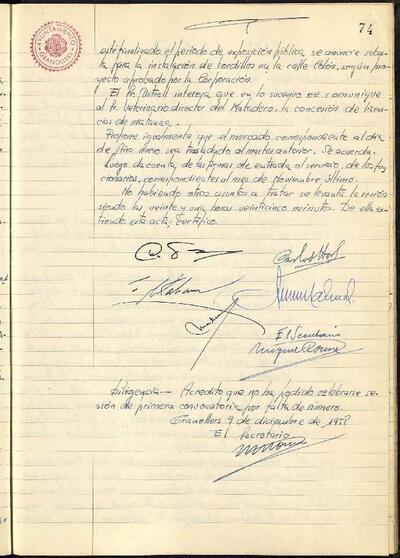 74
AYUNTAMIENTO
GRANOLLERS
finalizado el periodo de exposición pública, se anuncie subas-
ta para la instalación de bordillos en la calle Colón, según pro-
yecto aprobado por la Corporación.
El Sr. interesa que en lo sucesivo se comunique
al Sr. Veterinario director del Matadero, la concesión de licen-
cias de matanza.
Propone igualmente que el mercado correspondiente al día
de Año nuevo sea trasladado al martes anterior. Se acuerda.
Luego da cuenta de las firmas de entrada al servicio, de los fun-
cionarios, correspondientes al mes de Noviembre último.
No habiendo otros asuntos a tratar se levanta la sesión
siendo las veinte y una horas veinticinco minutos. De ella ex-
tiendo esta acta; certifico.
El Secretario
Diligencia.- Acredito que no ha podido celebrarse se-
sión de primera convocatoria por falta de número.
Granollers 9 de diciembre de 1958
El Secretario